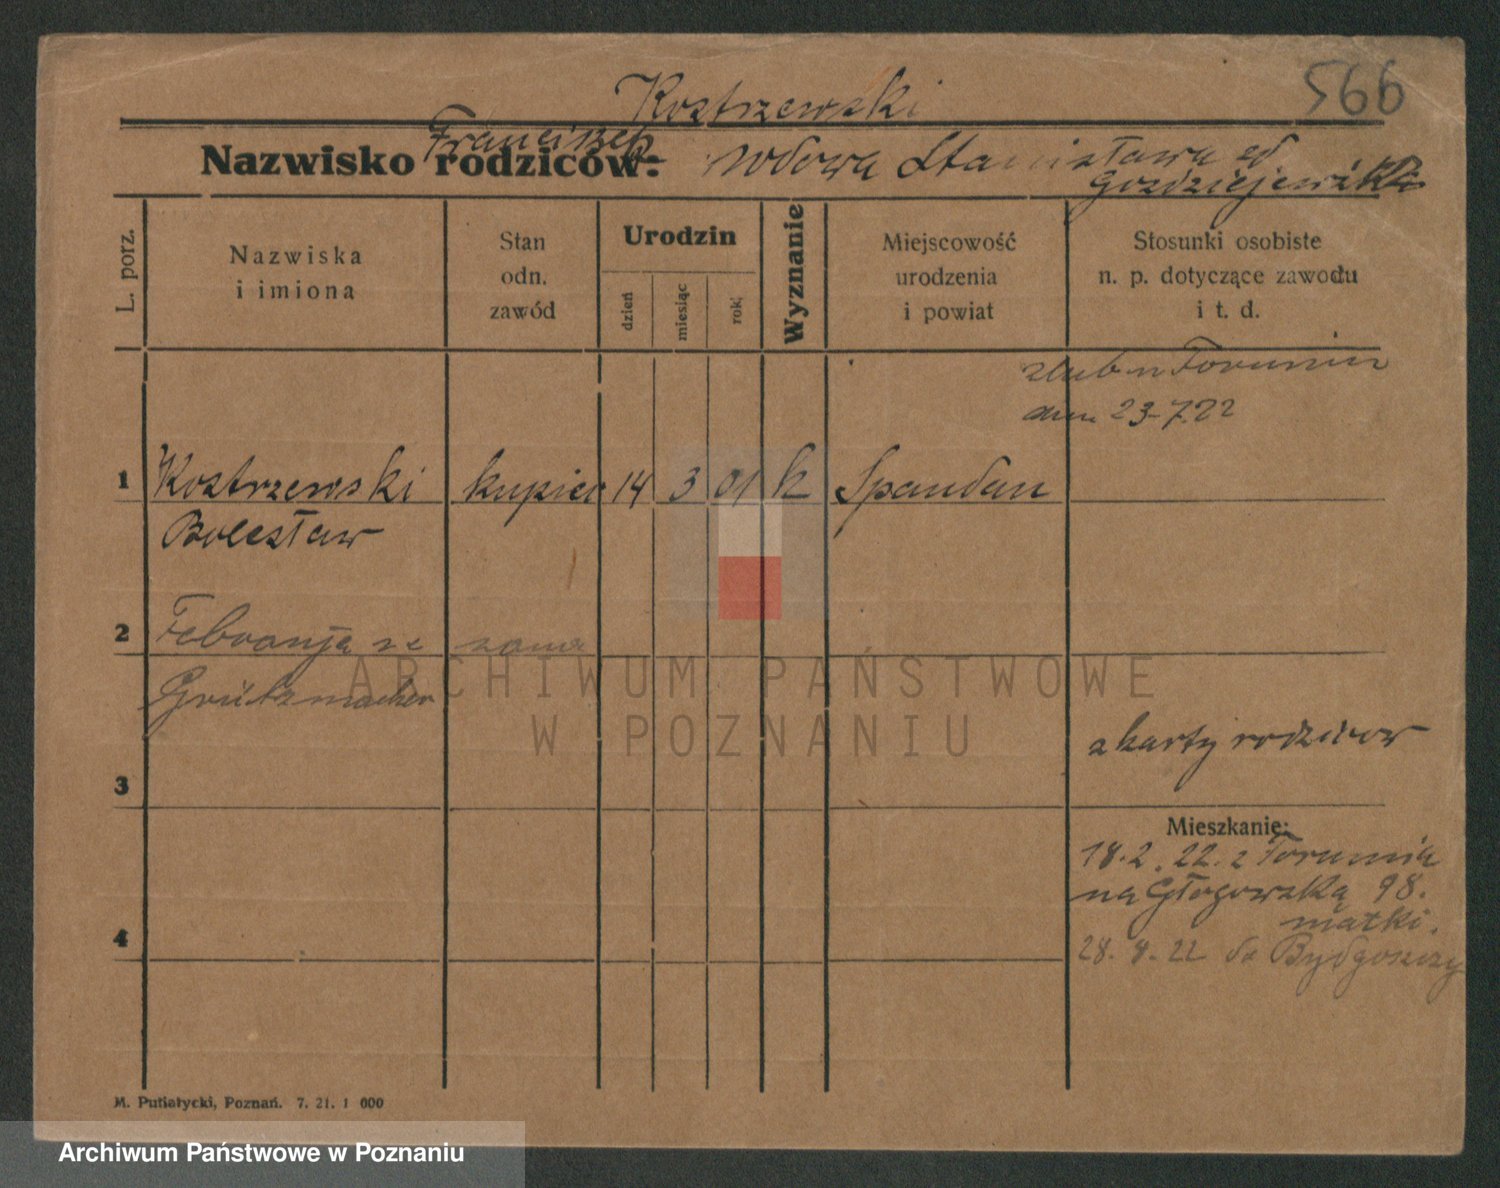 566
Kostrzewski
Franciszek
Nazwisko rodziców: wdowa Stanisława zd
Goździejewska
L. porz.
Nazwiska
i imiona
Stan
odn.
zawód
Urodzin
dzień
miesiąc
rok
Wyznanie
Miejscowość
urodzenia
i powiat
Stosunki osobiste
n. p. dotyczące zawodu
i t. d.
ślub w Toruniu
dnia 23-7.22
1 Kostrzewski kupiec 14 3 01 k Spandau
Bolesław
2 Febronja ze żona
Grützmacher
ARCHIWUM PAŃSTWOWE
W POZNANIU
z karty rodziców
3
Mieszkanie:
18.2.22. z Torunia
na Głogowską 98.
matki.
4
28.8.22 do Bydgoszczy
M. Putiatycki, Poznań. 7. 21. 1 000
Archiwum Państwowe w Poznaniu